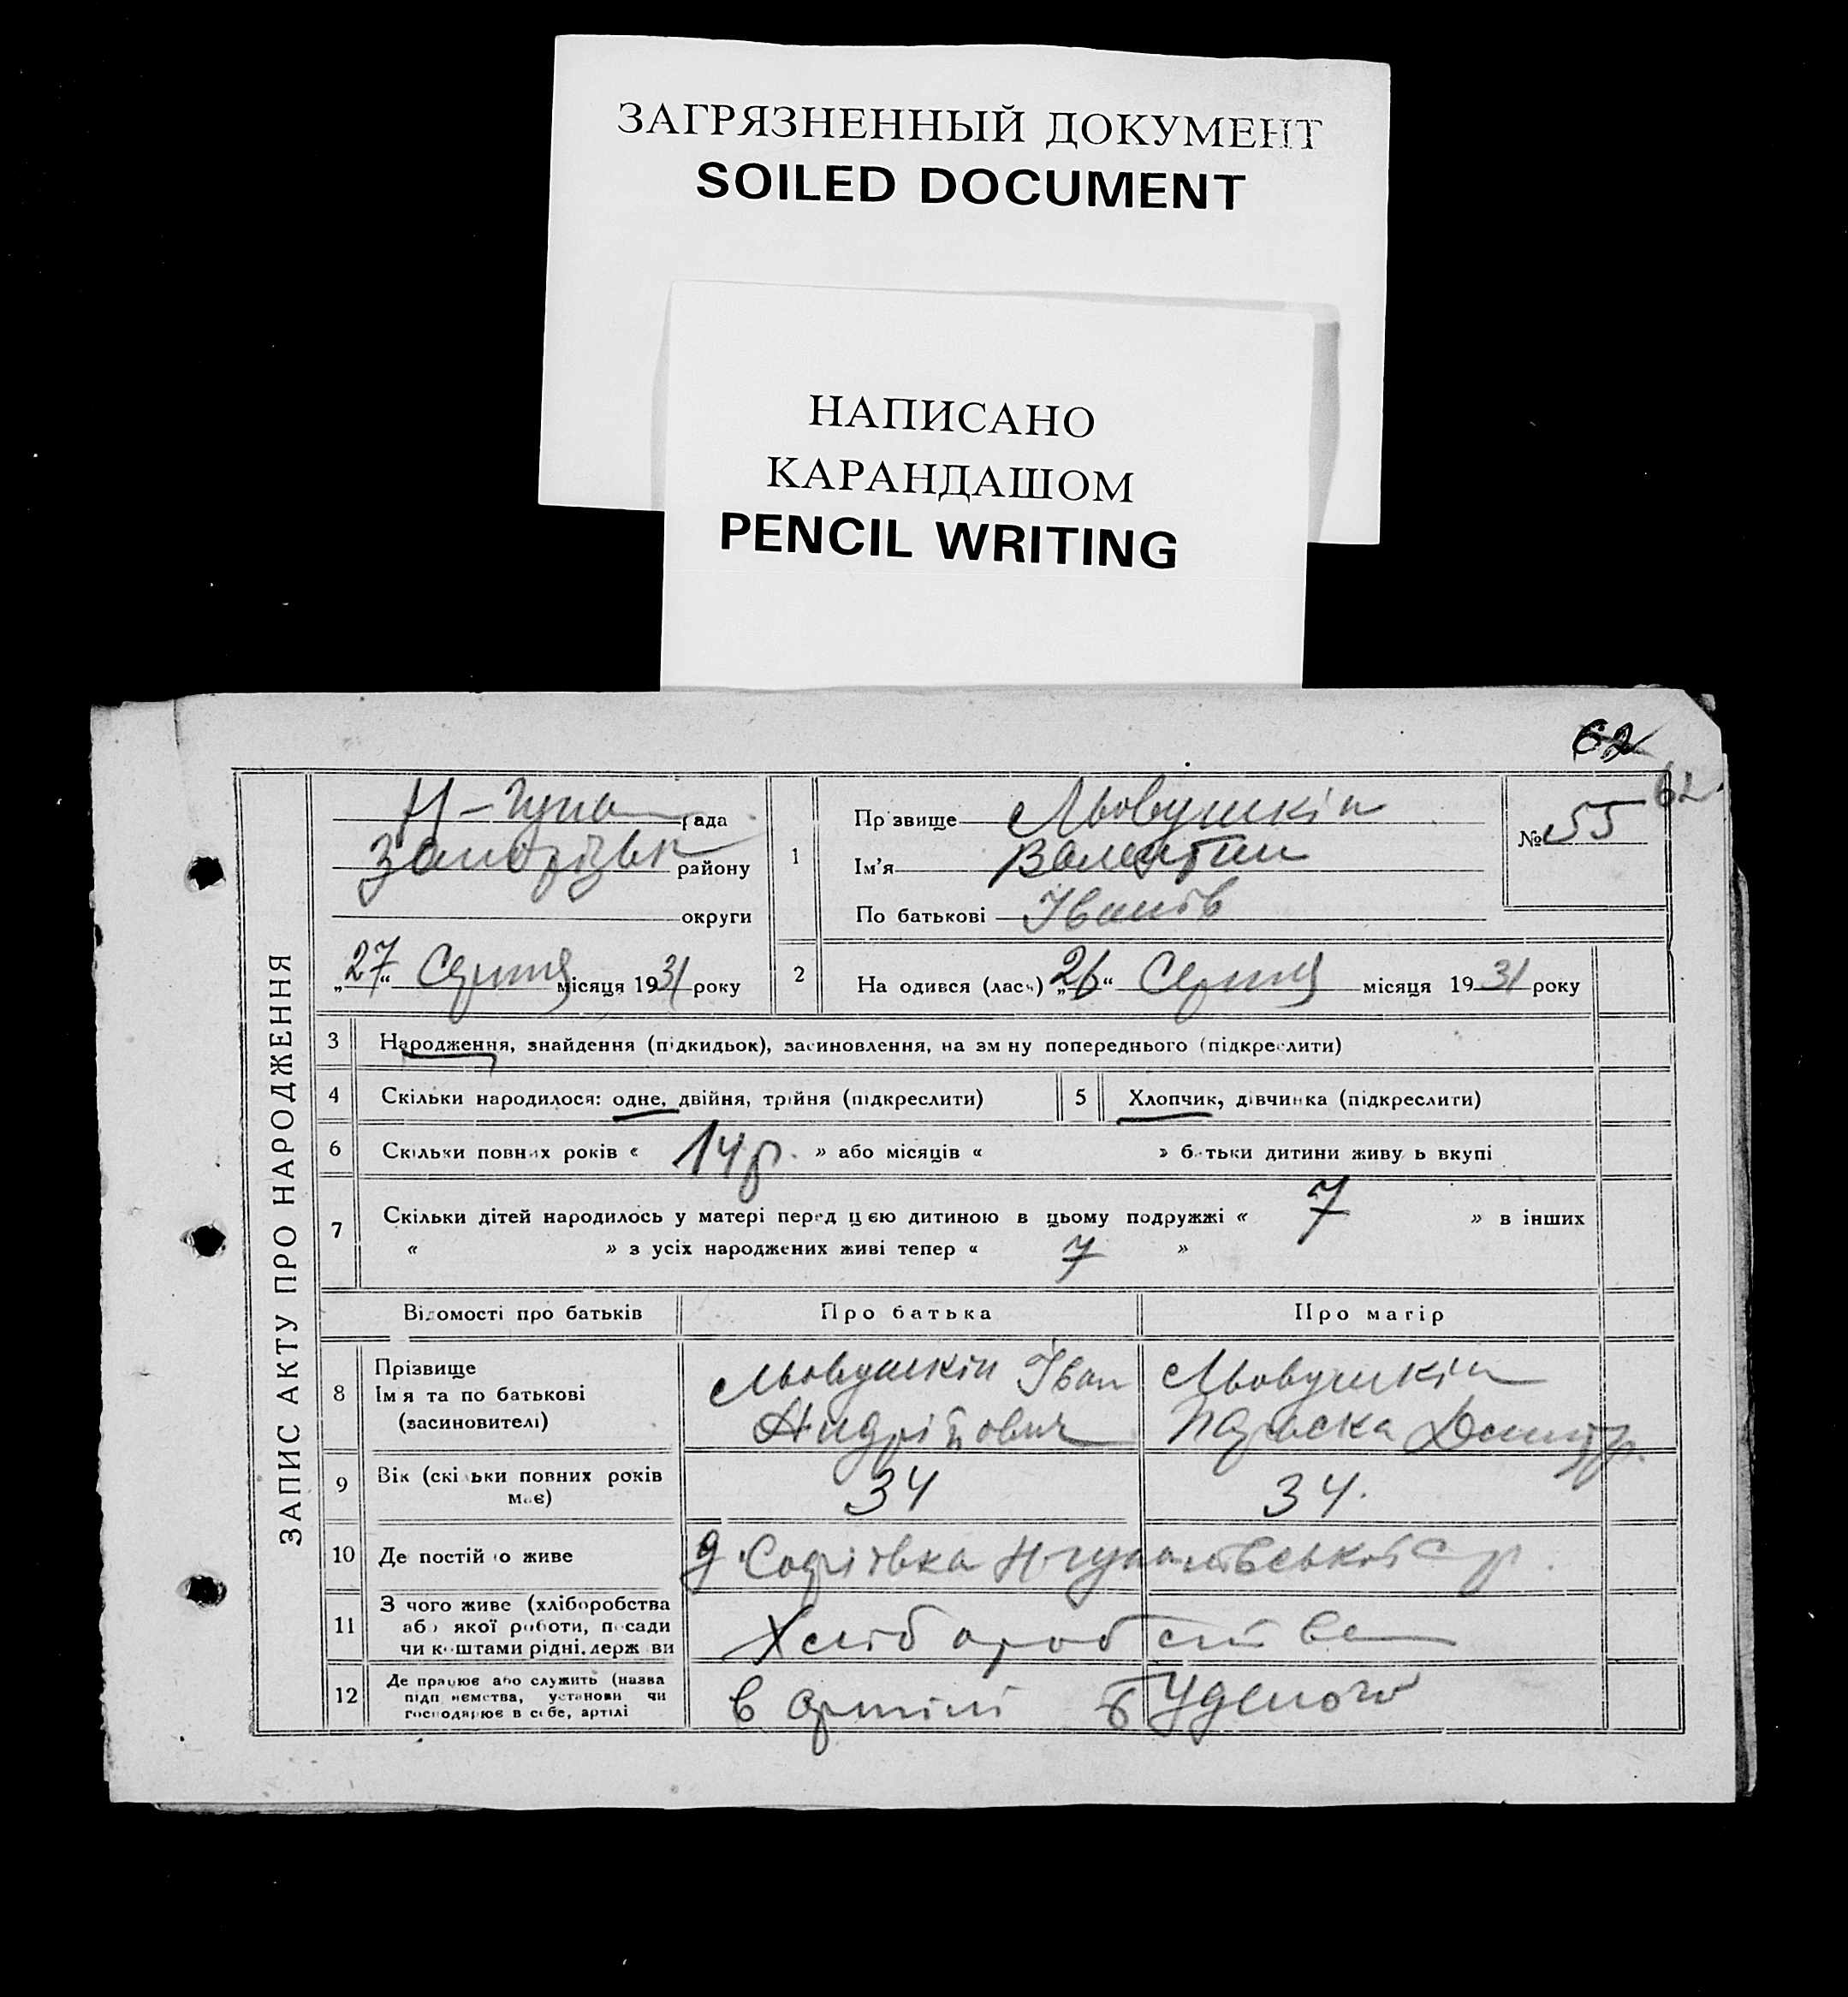 ЗАГРЯЗНЕННЫЙ ДОКУМЕНТ
SOILED DOCUMENT
НАПИСАНО
КАРАНДАШОМ
PENCIL WRITING
62
62
ЗАПИС АКТУ ПРО НАРОДЖЕННЯ
Н-Гупа рада
Запорізьк району
округи
„27“ Серпня місяця 1931 року
1
Прізвище Львовушкін
Ім'я Валентин
По батькові Іванів
№ 55
2 Народився (лась) „26“ Серпня місяця 1931 року
3 Народження, знайдення (підкидьок), засиновлення, на зміну попереднього (підкреслити)
4 Скільки народилося: одне, двійня, трійня (підкреслити)
5 Хлопчик, дівчинка (підкреслити)
6 Скільки повних років « 14 р. » або місяців « » батьки дитини живуть вкупі
7 Скільки дітей народилось у матері перед цією дитиною в цьому подружжі « 7 » в інших
« » з усіх народжених живі тепер « 7 »
Відомості про батьків Про батька Про матір
8 Прізвище
Ім'я та по батькові
(засиновителі)
Львовушкін Іван
Андрійович
Львовушкін
Параска Дмитр.
9 Вік (скільки повних років
має)
34 34.
10 Де постійно живе
Софіївка Н-гупалівської с р.
11 З чого живе (хліборобства
або якої роботи, посади
чи коштами рідні, держави
Хліборобства
12 Де працює або служить (назва
підприємства, установи чи
господарює в себе, артілі
в артілі Буденого